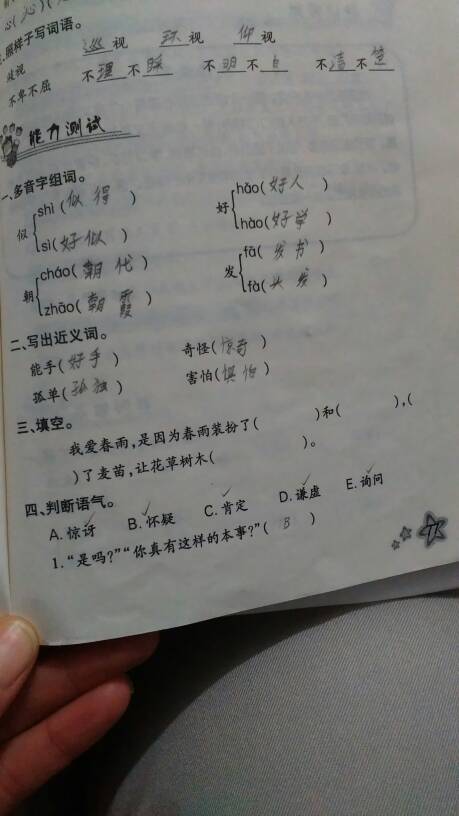 心(心)(
.照样子写词语。
歧视 巡视 环视 仰视
不卑不屈 不理不睬 不明不白 不清不
能力测试
一、多音字组词。
似 shì(似得) sì(好似)
好 hǎo(好人) hào(好学)
朝 cháo(朝代) zhāo(朝霞)
发 fā(发书) fà(头发)
二、写出近义词。
能手(好手) 奇怪(惊奇)
孤单(孤独) 害怕(惧怕)
三、填空。
我爱春雨,是因为春雨装扮了( )和( ),(
)了麦苗,让花草树木( )。
四、判断语气。
A.惊讶 B.怀疑 C.肯定 D.谦虚 E.询问
1.“是吗?”“你真有这样的本事?”(B)